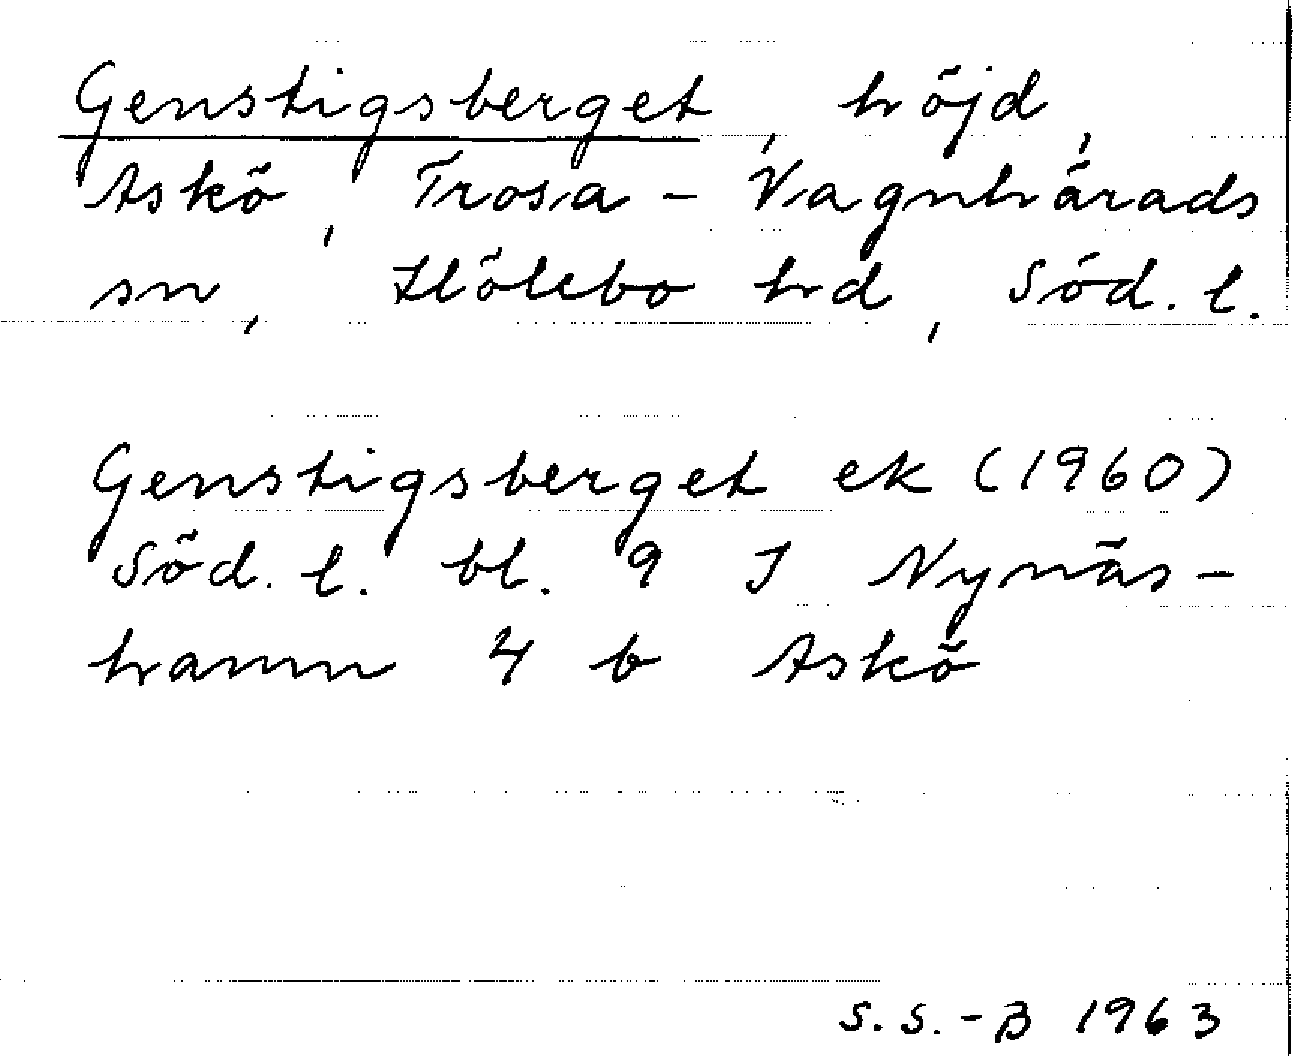 Genstigsberget, höjd,
Askö, Trosa-Vagnhärads
sn, Hölebo hd, Söd. l.
Genstigsberget ek (1960)
Söd. l. bl. 9 I Nynäs-
hamn 4 b Askö
S.S.-B 1963